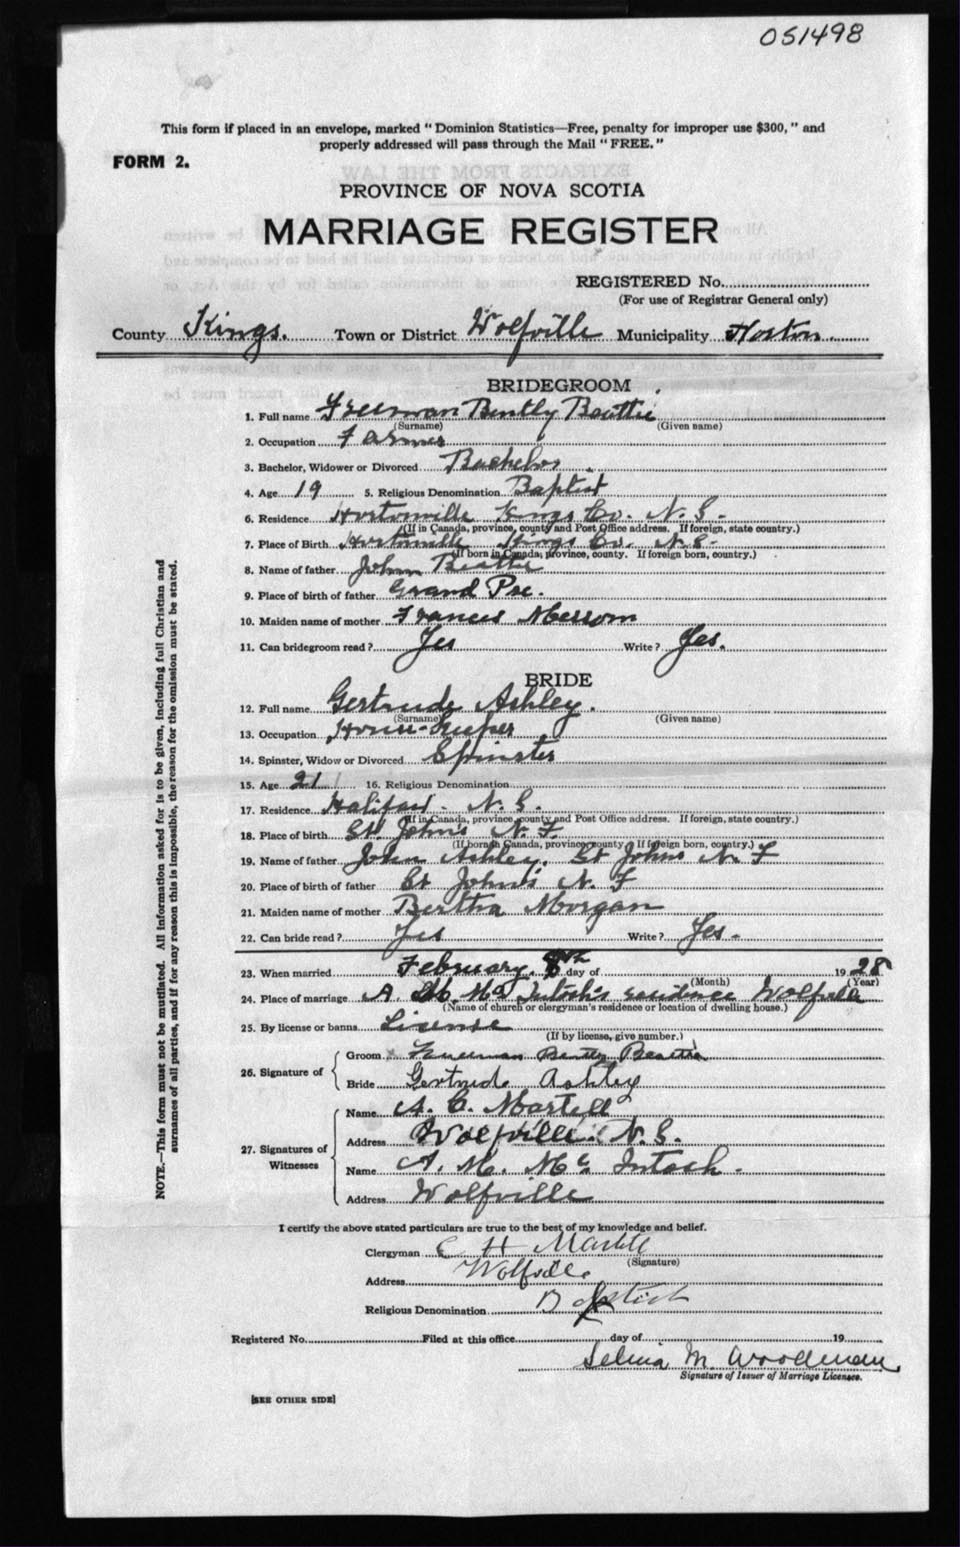 051498
This form if placed in an envelope, marked "Dominion Statistics—Free, penalty for improper use $300," and
properly addressed will pass through the Mail "FREE."
FORM 2.
PROVINCE OF NOVA SCOTIA
MARRIAGE REGISTER
REGISTERED No.
(For use of Registrar General only)
County Kings. Town or District Wolfville Municipality Horton.
BRIDEGROOM
1. Full name Freeman Bently Beattie
(Surname) (Given name)
2. Occupation Farmer
3. Bachelor, Widower or Divorced Bachelor.
4. Age 19 5. Religious Denomination Baptist
6. Residence Hortonville Kings Co. N.S.
(If in Canada, province, county and Post Office address. If foreign, state country.)
7. Place of Birth Hortonville Kings Co. N.S.
(If born in Canada, province, county. If foreign born, country.)
8. Name of father John Beattie
9. Place of birth of father Grand Pre.
10. Maiden name of mother Frances
11. Can bridegroom read? Yes Write? Yes.
BRIDE
12. Full name Gertrude Ashley.
(Surname) (Given name)
13. Occupation House-Keeper
14. Spinster, Widow or Divorced Spinster
15. Age 21 16. Religious Denomination
17. Residence Halifax. N.S.
(If in Canada, province, county and Post Office address. If foreign, state country.)
18. Place of birth St. John's N.F.
(If born in Canada, province, county. If foreign born, country.)
19. Name of father John Ashley, St Johns N.F
20. Place of birth of father St John's N.F
21. Maiden name of mother Bertha Morgan
22. Can bride read? Yes Write? Yes.
23. When married February 8th day of 1928
(Month) (Year)
24. Place of marriage A. M. McIntosh's residence Wolfville
(Name of church or clergyman's residence or location of dwelling house.)
25. By license or banns License
(If by license, give number.)
26. Signature of
Groom x Freeman Bently Beattie
Bride Gertrude Ashley
27. Signatures of Witnesses
Name A. C. Martell
Address Wolfville. N.S.
Name A. M. McIntosh.
Address Wolfville
I certify the above stated particulars are true to the best of my knowledge and belief.
Clergyman H Martell
(Signature)
Address Wolfville
Religious Denomination Baptist
Registered No. Filed at this office day of 19
Selina M. Woodman
Signature of Issuer of Marriage Licenses.
[SEE OTHER SIDE]
NOTE.—This form must not be mutilated. All information asked for is to be given, including full Christian and
surnames of all parties, and if for any reason this is impossible, the reason for the omission must be stated.